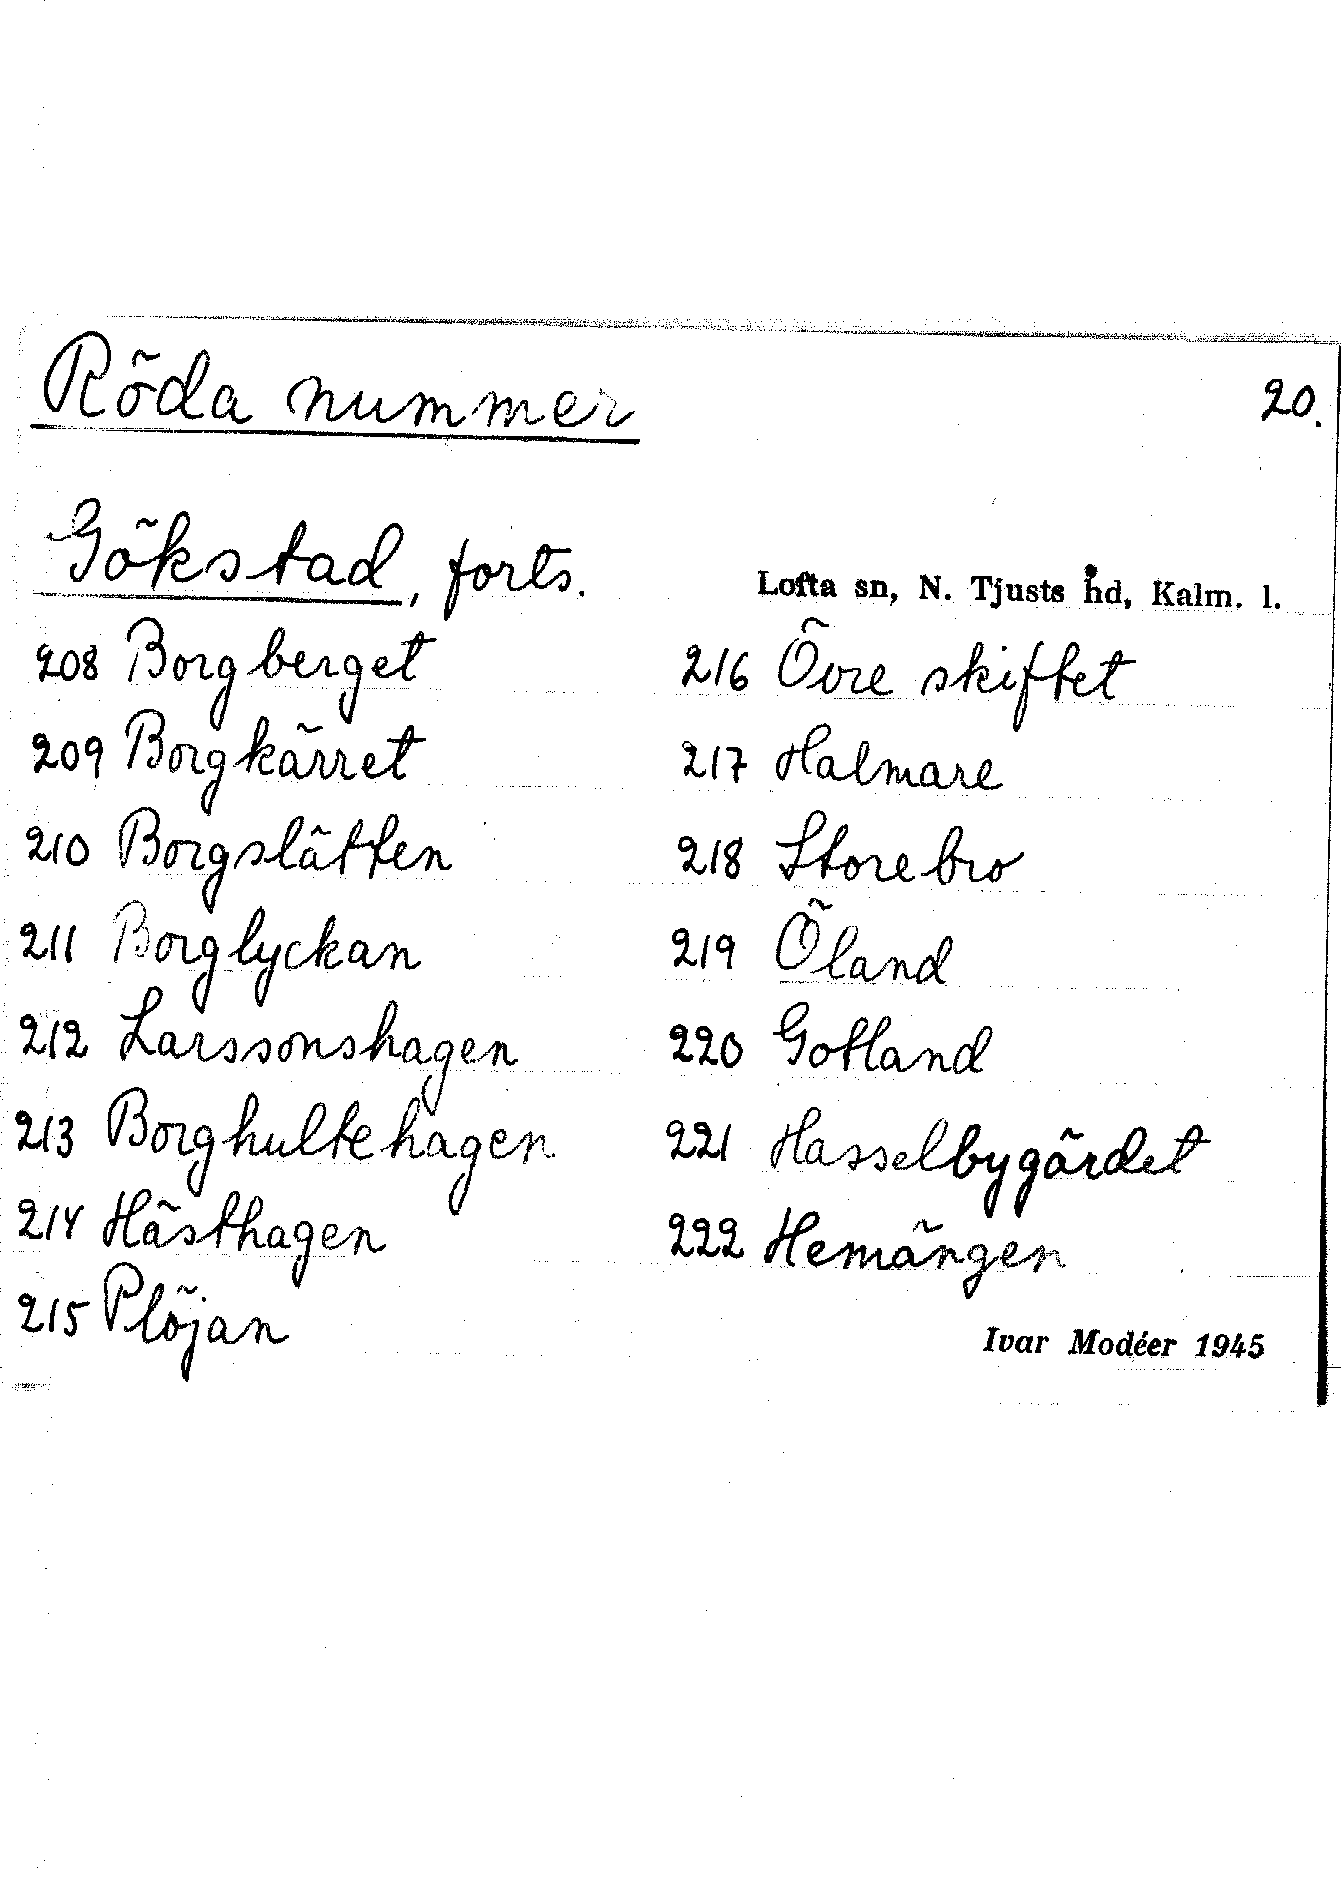 Röda nummer
20.
Gökstad, forts.
Lofta sn, N. Tjusts hd, Kalm. l.
208 Borgberget
209 Borgkärret
210 Borgslätten
211 Borglyckan
212 Larssonshagen
213 Borghultehagen
214 Hästhagen
215 Plöjan
216 Övre skiftet
217 Halmare
218 Storebro
219 Öland
220 Gotland
221 Hasselbygärdet
222 Hemängen
Ivar Modéer 1945